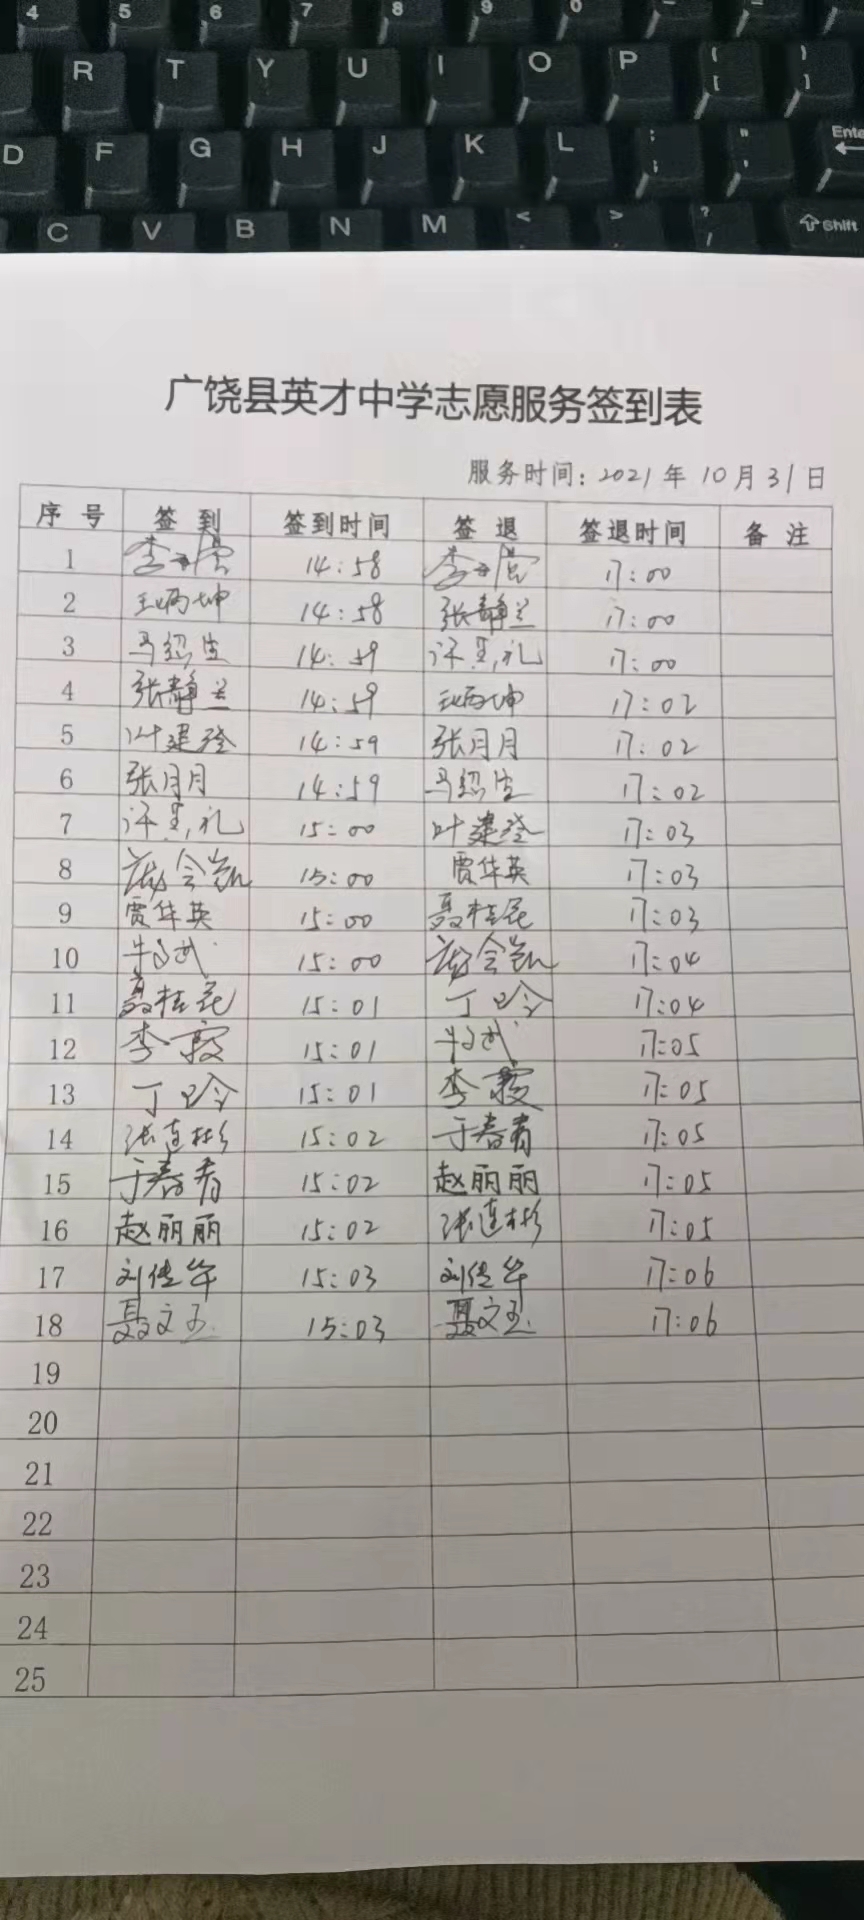 4 5 6 7 8 9 0
R T Y U I O P { [ } ]
D F G H J K L : ; " ' Enter
C V B N M < > ? / Shift
广饶县英才中学志愿服务签到表
服务时间: 2021 年 10 月 31 日
序 号 签 到 签到时间 签 退 签退时间 备 注
1 14:58 17:00
2 14:58 张静兰 17:00
3 马绍生 14:59 17:00
4 张静兰 14:59 17:02
5 叶建登 14:59 张月月 17:02
6 张月月 14:59 马绍生 17:02
7 15:00 叶建登 17:03
8 15:00 贾华英 17:03
9 贾华英 15:00 聂桂花 17:03
10 15:00 17:04
11 聂桂花 15:01 丁玲 17:04
12 李霞 15:01 17:05
13 丁玲 15:01 李霞 17:05
14 张连彬 15:02 于春青 17:05
15 于春青 15:02 赵丽丽 17:05
16 赵丽丽 15:02 张连彬 17:05
17 刘传华 15:03 刘传华 17:06
18 聂文玉 15:03 聂文玉 17:06
19
20
21
22
23
24
25